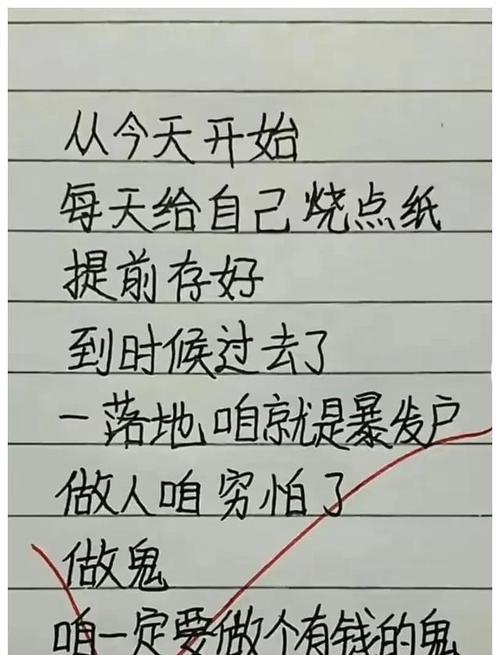 从今天开始
每天给自己烧点纸
提前存好
到时候过去了
一落地,咱就是暴发户
做人咱穷怕了
做鬼
咱一定要做个有钱的鬼